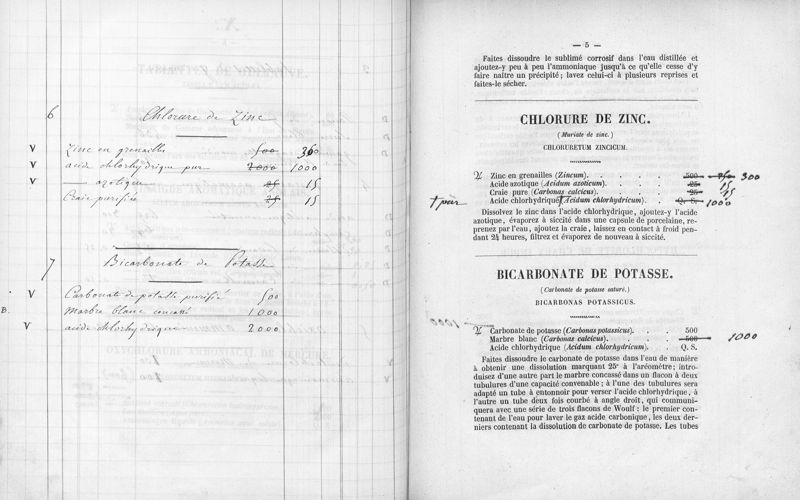 6 Chlorure de Zinc
V Zinc en grenailles 500 300
V acide chlorhydrique pur 2000 1000
V — azotique 25 15
Craie purifiée 25 15
7 Bicarbonate de Potasse
V Carbonate de potasse purifié 500
B. Marbre blanc concassé 1000
V acide chlorhydrique 2000
— 5 —
Faites dissoudre le sublimé corrosif dans l'eau distillée et
ajoutez-y peu à peu l'ammoniaque jusqu'à ce qu'elle cesse d'y
faire naître un précipité; lavez celui-ci à plusieurs reprises et
faites-le sécher.
CHLORURE DE ZINC.
(Muriate de zinc.)
CHLORURETUM ZINCICUM.
♃ Zinc en grenailles (Zincum). . . . . 500 250 300
Acide azotique (Acidum azoticum) . . . . 25 15
Craie pure (Carbonas calcicus). . . . . 25 15
† pur Acide chlorhydrique † (Acidum chlorhydricum). . . Q. S. 1000
Dissolvez le zinc dans l'acide chlorhydrique, ajoutez-y l'acide
azotique, évaporez à siccité dans une capsule de porcelaine, re-
prenez par l'eau, ajoutez la craie, laissez en contact à froid pen-
dant 24 heures, filtrez et évaporez de nouveau à siccité.
BICARBONATE DE POTASSE.
(Carbonate de potasse saturé.)
BICARBONAS POTASSICUS.
♃ Carbonate de potasse (Carbonas potassicus). . . 500
Marbre blanc (Carbonas calcicus). . . . 500 1000
Acide chlorhydrique (Acidum chlorhydricum). . . Q. S.
Faites dissoudre le carbonate de potasse dans l'eau de manière
à obtenir une dissolution marquant 25° à l'aréomètre; intro-
duisez d'une autre part le marbre concassé dans un flacon à deux
tubulures d'une capacité convenable; à l'une des tubulures sera
adapté un tube à entonnoir pour verser l'acide chlorhydrique, à
l'autre un tube deux fois courbé à angle droit, qui communi-
quera avec une série de trois flacons de Woulf: le premier con-
tenant de l'eau pour laver le gaz acide carbonique, les deux der-
niers contenant la dissolution de carbonate de potasse. Les tubes